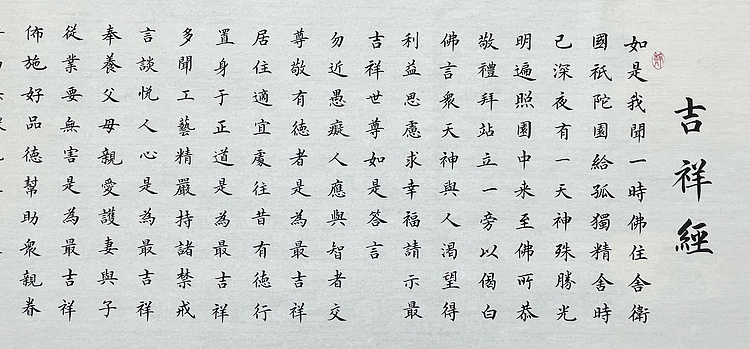 吉祥經
如是我聞一時佛住舍衛
國祇陀園給孤獨精舍時
已深夜有一天神殊勝光
明遍照園中来至佛所恭
敬禮拜站立一旁以偈白
佛言衆天神與人渴望得
利益思慮求幸福請示最
吉祥世尊如是答言
勿近愚癡人應與智者交
尊敬有德者是為最吉祥
居住適宜處往昔有德行
置身于正道是為最吉祥
多聞工藝精嚴持諸禁戒
言談悅人心是為最吉祥
奉養父母親愛護妻與子
從業要無害是為最吉祥
佈施好品德幫助衆親眷